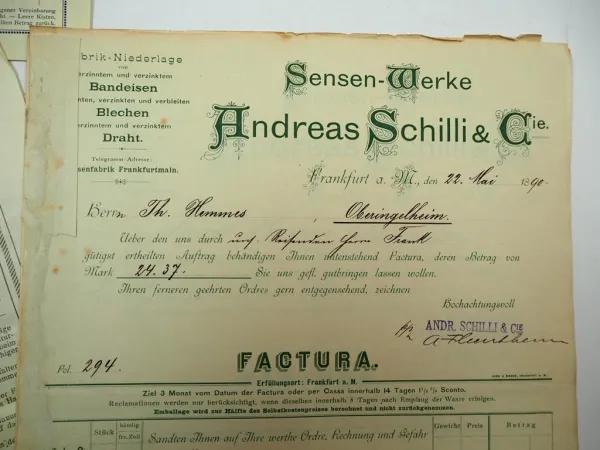 gener Vereinbarung
ht — Leere Kisten,
lben Betrag zurück.
brik-Niederlage
von
erzinntem und verzinktem
Bandeisen
nten, verzinkten und verbleiten
Blechen
erzinntem und verzinktem
Draht.
Telegramm-Adresse:
senfabrik Frankfurtmain.
Sensen-Werke
Andreas Schilli & Cie.
Frankfurt a. M., den 22. Mai 1890.
Herrn Th. Hemmes, Oberingelheim.
Ueber den uns durch uns. Reisenden Herrn Frank
gütigst ertheilten Auftrag behändigen Ihnen untenstehend Factura, deren Betrag von
Mark 24.37. Sie uns gefl. gutbringen lassen wollen.
Ihren ferneren geehrten Ordres gern entgegensehend, zeichnen
Hochachtungsvoll
ANDR. SCHILLI & CIE
Fol. 294.
FACTURA.
Erfüllungsort: Frankfurt a. M.
Ziel 3 Monat vom Datum der Factura oder per Cassa innerhalb 14 Tagen 1½ % Sconto.
Reclamationen werden nur berücksichtigt, wenn dieselben innerhalb 8 Tagen nach Empfang der Waare erfolgen.
Emballage wird zur Hälfte des Selbstkostenpreises berechnet und nicht zurückgenommen.
Stück
fro. Zoll
Sandten Ihnen auf Ihre werthe Ordre, Rechnung und Gefahr
Gewicht
Preis
Betrag